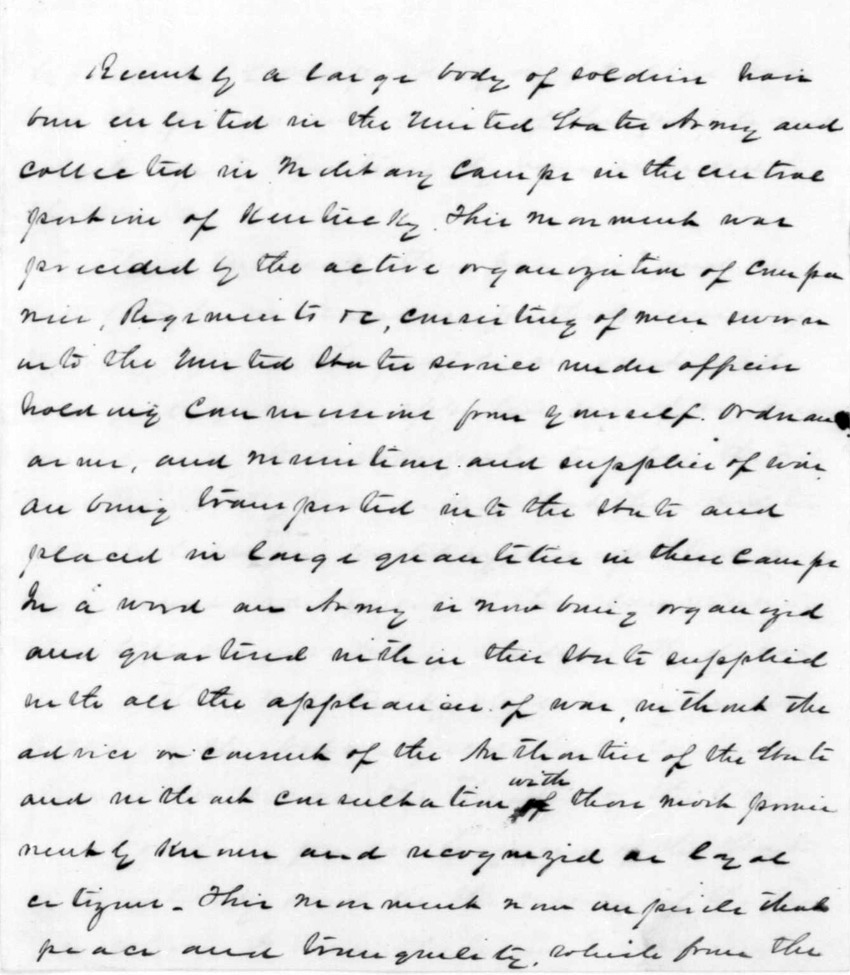 Recently a large body of soldiers have
been enlisted in the United States Army and
collected in Military Camps in the central
portion of Kentucky. This movement was
preceded by the active organization of compa
nies, Regiments &c, consisting of men sworn
into the United States service under officers
holding Commissions from yourself. Ordnance
arms, and munitions and supplies of war
are being transported into the State and
placed in large quantities in these Camps
In a word an Army is now being organized
and quartered within this State supplied
with all the appliances of war, without the
advice or consent of the Authorities of the State
and without consultation with those most promi
nently known and recognized as loyal
citizens - This movement now imperils that
peace and tranquility, which from the